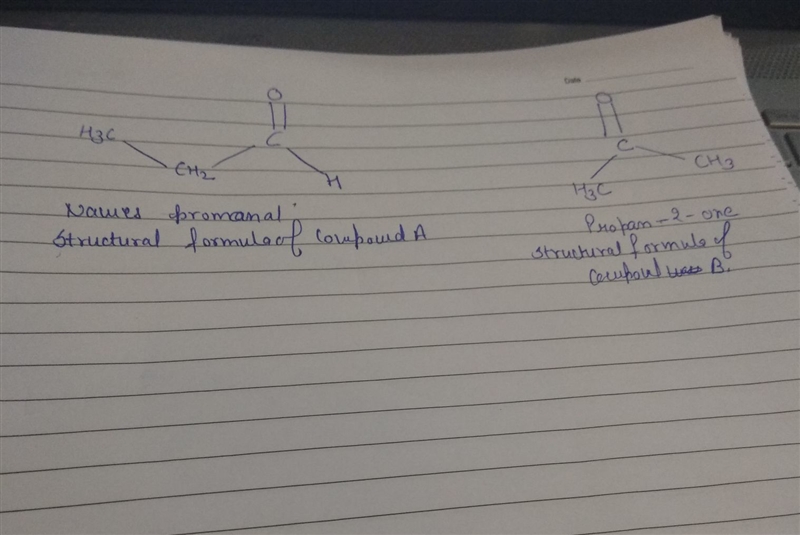 Date
O
H3C
CH2
C
H
Names promanal
Structural formule of Compound A
O
C
H3C
CH3
Propan-2-one
Structural formule of
B.